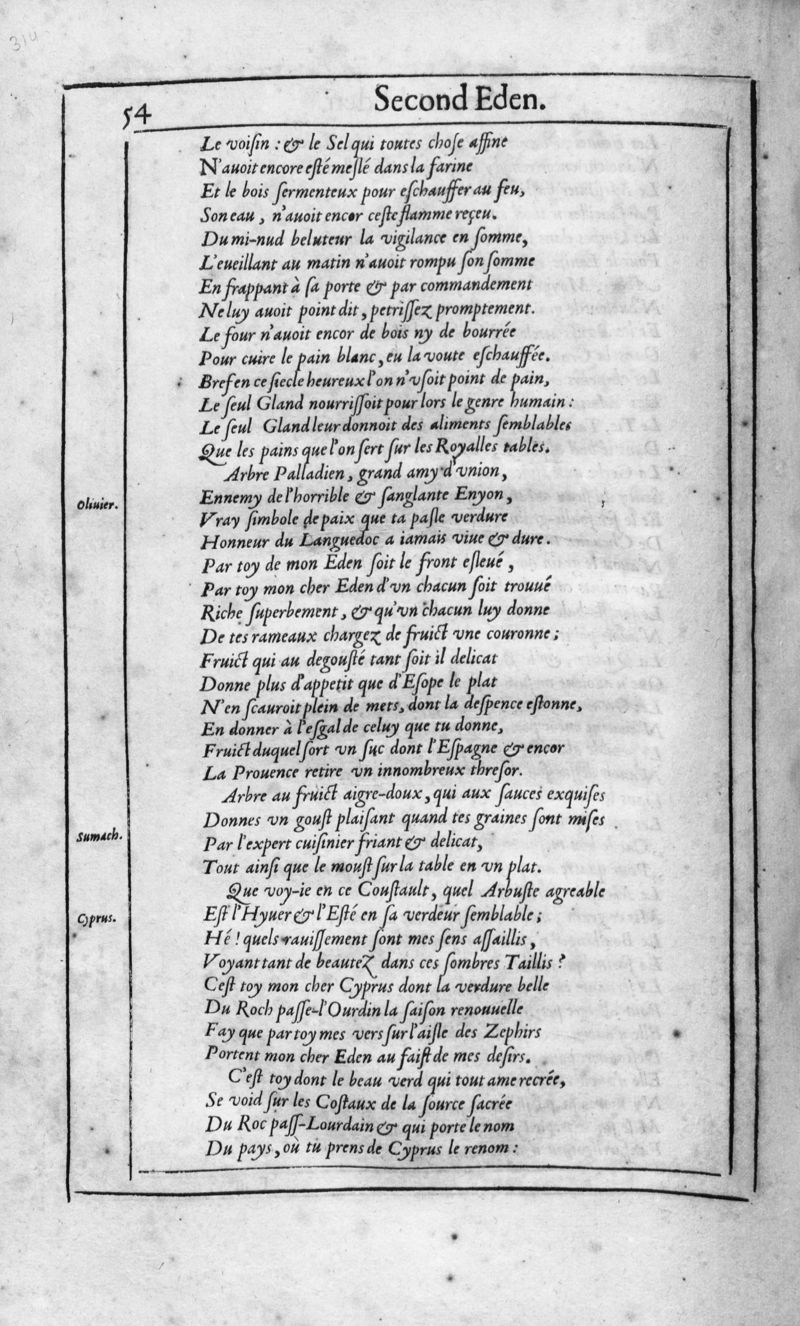 314
54
Second Eden.
Le voiſin : & le Sel qui toutes choſe affine
N'auoit encore eſté meſlé dans la farine
Et le bois ſermenteux pour eſchauffer au feu,
Son eau, n'auoit encor ceſte flamme reçeu.
Du mi-nud beluteur la vigilance en ſomme,
L'eueillant au matin n'auoit rompu ſon ſomme
En frappant à ſa porte & par commandement
Ne luy auoit point dit, petriſſez promptement.
Le four n'auoit encor de bois ny de bourrée
Pour cuire le pain blanc, eu la voute eſchauffée.
Bref en ce ſiecle heureux l'on n'vſoit point de pain,
Le ſeul Gland nourriſſoit pour lors le genre humain :
Le ſeul Gland leur donnoit des aliments ſemblables
Que les pains que l'on ſert ſur les Royalles tables.
Arbre Palladien, grand amy d'vnion,
Oliuier.
Ennemy de l'horrible & ſanglante Enyon,
Vray ſimbole de paix que ta paſle verdure
Honneur du Languedoc a iamais viue & dure.
Par toy de mon Eden ſoit le front eſleué,
Par toy mon cher Eden d'vn chacun ſoit trouué
Riche ſuperbement, & qu'vn chacun luy donne
De tes rameaux chargez de fruict vne couronne ;
Fruict qui au degouſté tant ſoit il delicat
Donne plus d'appetit que d'Eſope le plat
N'en ſcauroit plein de mets, dont la deſpence eſtonne,
En donner à l'eſgal de celuy que tu donne,
Fruict duquel ſort vn ſuc dont l'Eſpagne & encor
La Prouence retire vn innombreux threſor.
Arbre au fruict aigre-doux, qui aux ſauces exquiſes
Donnes vn gouſt plaiſant quand tes graines ſont miſes
Sumach.
Par l'expert cuiſinier friant & delicat,
Tout ainſi que le mouſt ſur la table en vn plat.
Que voy-ie en ce Couſtault, quel Arbuſte agreable
Cyprus.
Eſt l'Hyuer & l'Eſté en ſa verdeur ſemblable ;
Hé ! quels rauiſſement ſont mes ſens aſſaillis,
Voyant tant de beautez dans ces ſombres Taillis ?
C'eſt toy mon cher Cyprus dont la verdure belle
Du Roch paſſe-l'Ourdin la ſaiſon renouuelle
Fay que par toy mes vers ſur l'aiſle des Zephirs
Portent mon cher Eden au faiſt de mes deſirs.
C'eſt toy dont le beau verd qui tout ame recrée,
Se void ſur les Coſtaux de la ſource ſacrée
Du Roc paſſ-Lourdain & qui porte le nom
Du pays, où tu prens de Cyprus le renom :